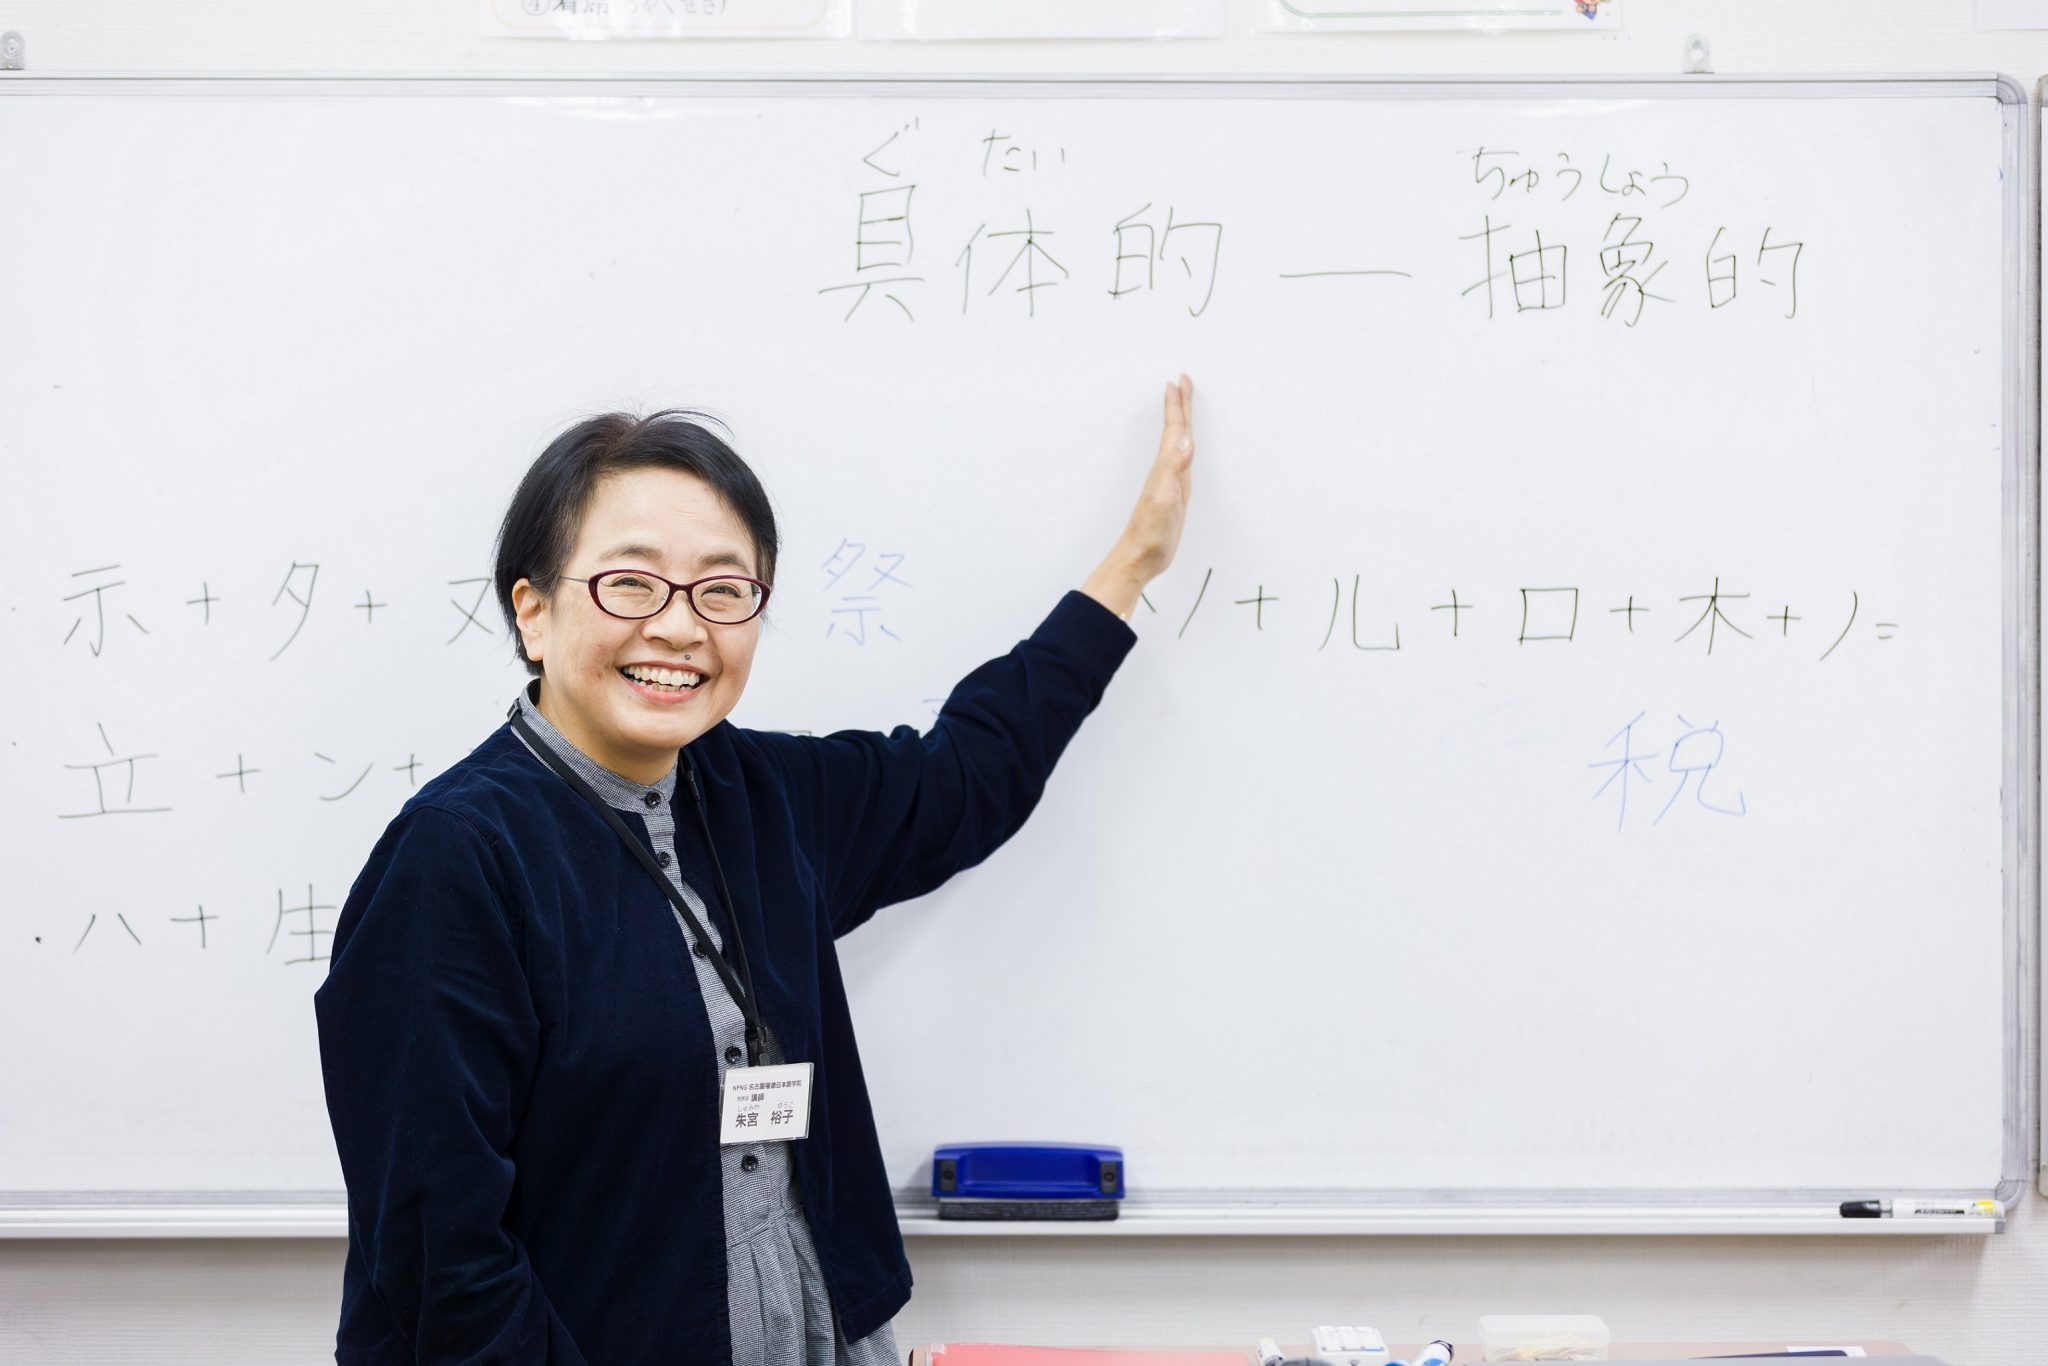 ④着席(ちゃくせき)
ぐ たい ちゅうしょう
具体的 — 抽象的
示+夕+ヌ 祭
ソ+儿+口+木+ノ=
立+ン+
税
ハ+生
NFNG 名古屋福徳日本語学院
講師
しゅみや ゆうこ
朱宮 裕子